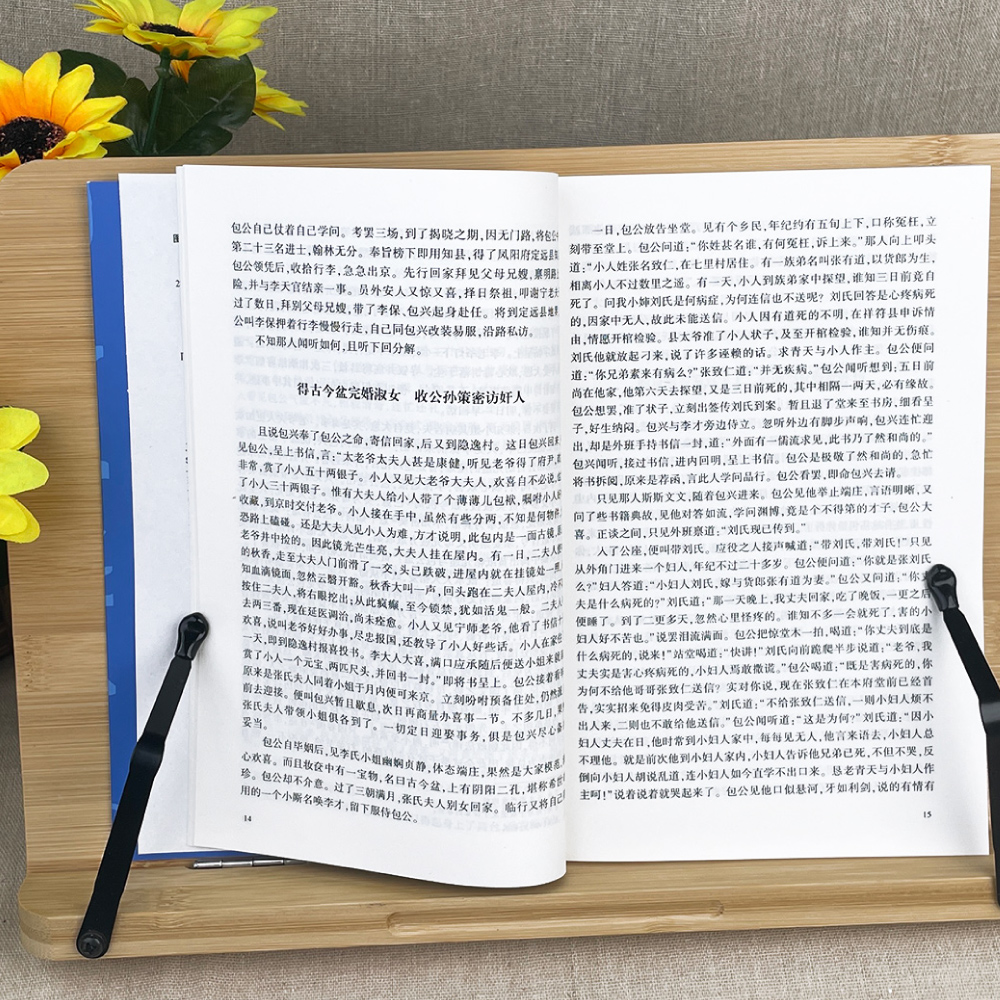 包公自己仗着自己学问。考罢三场，到了揭晓之期，因无门路，将包公中
第二十三名进士，翰林无分。奉旨榜下即用知县，得了凤阳府定远县知
包公领凭后，收拾行李，急急出京。先行回家拜见父母兄嫂，禀明路
险，并与李天官结亲一事。员外安人又惊又喜，择日祭祖，叩谢宁老夫
过了数日，拜别父母兄嫂，带了李保、包兴起身赴任。将到定远县地界
公叫李保押着行李慢慢行走，自己同包兴改装易服，沿路私访。
不知那人闻听如何，且听下回分解。
得古今盆完婚淑女　收公孙策密访奸人
且说包兴奉了包公之命，寄信回家，后又到隐逸村。这日包兴回来
见包公，呈上书信，言：“太老爷太夫人甚是康健，听见老爷得了府尹，
非常，赏了小人五十两银子。小人又见大老爷大夫人，欢喜自不必说，
了小人三十两银子。惟有大夫人给小人带了个薄薄儿包袱，嘱咐小人
收藏，到京时交付老爷。小人接在手中，虽然有些分两，不知是何物件
恐路上磕碰。还是大夫人见小人为难，方才说明，此包内是一面古镜，
老爷井中捡的。因此镜光芒生亮，大夫人挂在屋内。有一日，二夫人
的秋香，走至大夫人门前滑了一交，头已跌破，进屋内就在挂镜处一照
知血满镜面，忽然云翳开豁。秋香大叫一声，回头跑在二夫人屋内，冷不
按住二夫人，将右眼挖出；从此疯癫，至今锁禁，犹如活鬼一般。二夫人
去两三番，现在延医调治，尚未痊愈。小人又见宁师老爷，他看了书信
欢喜，说叫老爷好好办事，尽忠报国，还教导了小人好些话。小人在家住
一天，即到隐逸村报喜投书。李大人大喜，满口应承随后便送小姐来就
赏了小人一个元宝、两匹尺头，并回书一封。”即将书呈上。包公接着
原来是张氏夫人同着小姐于月内便可来京。立刻吩咐预备住处，仍然
前去迎接。便叫包兴暂且歇息，次日再商量办喜事一节。不多几日，
张氏夫人带领小姐俱各到了。一切定日迎娶事务，俱是包兴尽心备
妥当。
包公自毕姻后，见李氏小姐幽娴贞静，体态端庄，果然是大家模范，
心欢喜。而且妆奁中有一宝物，名曰古今盆，上有阴阳二孔，堪称希世
珍。包公却不介意。过了三朝满月，张氏夫人别女回家。临行又将自己
用的一个小厮名唤李才，留下服侍包公。
14
一日，包公放告坐堂。见有个乡民，年纪约有五旬上下，口称冤枉，立
刻带至堂上。包公问道：“你姓甚名谁，有何冤枉，诉上来。”那人向上叩头
道：“小人姓张名致仁，在七里村居住。有一族弟名叫张有道，以货郎为生，
相离小人不过数里之遥。有一天，小人到族弟家中探望，谁知三日前竟自
死了。问我小婶刘氏是何病症，为何连信也不送呢？刘氏回答是心疼病死
的，因家中无人，故此未能送信。小人因有道死的不明，在祥符县申诉情
由，情愿开棺检验。县太爷准了小人状子，及至开棺检验，谁知并无伤痕。
刘氏他就放起刁来，说了许多诬赖的话。求青天与小人作主。包公便问
道：“你兄弟素来有病么？”张致仁道：“并无疾病。”包公闻听想到：五日前
尚在他家，他第六天去探望，又是三日前死的，其中相隔一两天，必有缘故。
包公想罢，准了状子，立刻出签传刘氏到案。暂且退了堂来至书房，细看呈
子，好生纳闷。包公与李才旁边侍立。忽听外边有脚步声响，包兴连忙迎
出，却是外班手持书信一封，道：“外面有一儒流求见，此书乃了然和尚的。”
包兴闻听，接过书信，进内回明，呈上书信。包公是极敬了然和尚的，急忙
将书拆阅，原来是荐函，言此人学问品行。包公看罢，即命包兴去请。
只见那人斯斯文文，随着包兴进来。包公见他举止端庄，言语明晰，又
问了些书籍典故，见他对答如流，学问渊博，竟是个不得第的才子，包公大
喜。正谈之间，只见外班禀道：“刘氏现已传到。”
入了公座，便叫带刘氏。应役之人接声喊道：“带刘氏，带刘氏！”只见
从外角门进来一个妇人，年纪不过二十多岁。包公便问道：“你就是张刘氏
么？”妇人答道：“小妇人刘氏，嫁与货郎张有道为妻。”包公又问道：“你丈
夫是什么病死的？”刘氏道：“那一天晚上，我丈夫回家，吃了晚饭，一更之后
便睡了。到了二更多天，忽然心里怪疼的。谁知不多一会就死了，害的小
妇人好不苦也。”说罢泪流满面。包公把惊堂木一拍，喝道：“你丈夫到底是
什么病死的，说来！”站堂喝道：“快讲！”刘氏向前跪爬半步说道：“老爷，我
丈夫实是害心疼病死的，小妇人焉敢撒谎。”包公喝道：“既是害病死的，你
为何不给他哥哥张致仁送信？实对你说，现在张致仁在本府堂前已经首
告，实实招来免得皮肉受苦。”刘氏道：“不给张致仁送信，一则小妇人烦不
出人来，二则也不敢给他送信。”包公闻听道：“这是为何？”刘氏道：“因小
妇人丈夫在日，他时常到小妇人家中，每每见无人，他言来语去，小妇人总
不理他。就是前次他到小妇人家内，小妇人告诉他兄弟已死，不但不哭，反
倒向小妇人胡说乱道，连小妇人如今直学不出口来。恳老青天与小妇人作
主呵！”说着说着就哭起来了。包公见他口似悬河，牙如利剑，说的有情有
15